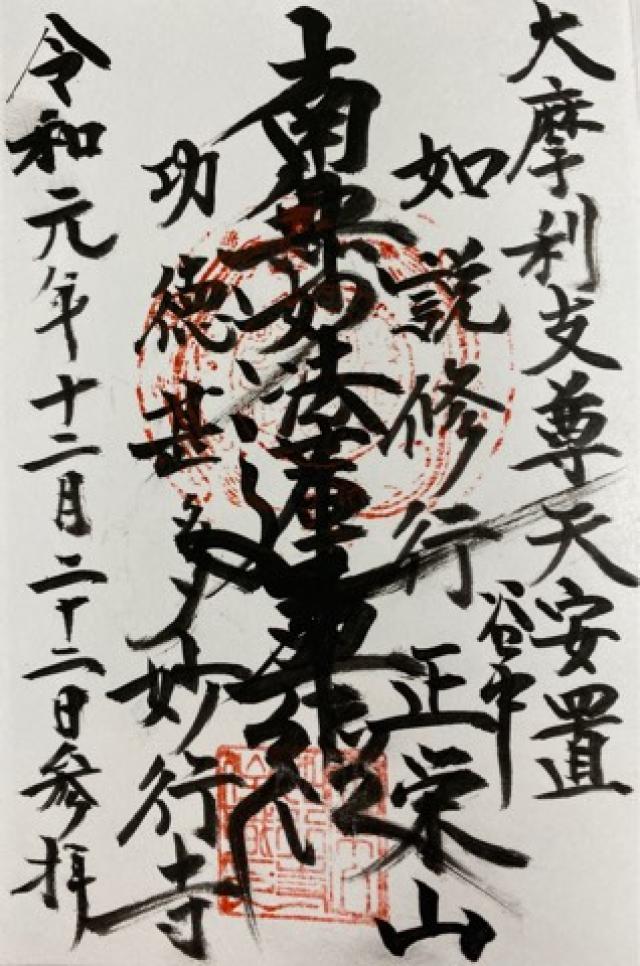 大摩利支尊天安置
谷中
如説修行 正栄山
南無妙法蓮華経
功徳甚多 妙行寺
令和元年十二月二十二日参拝